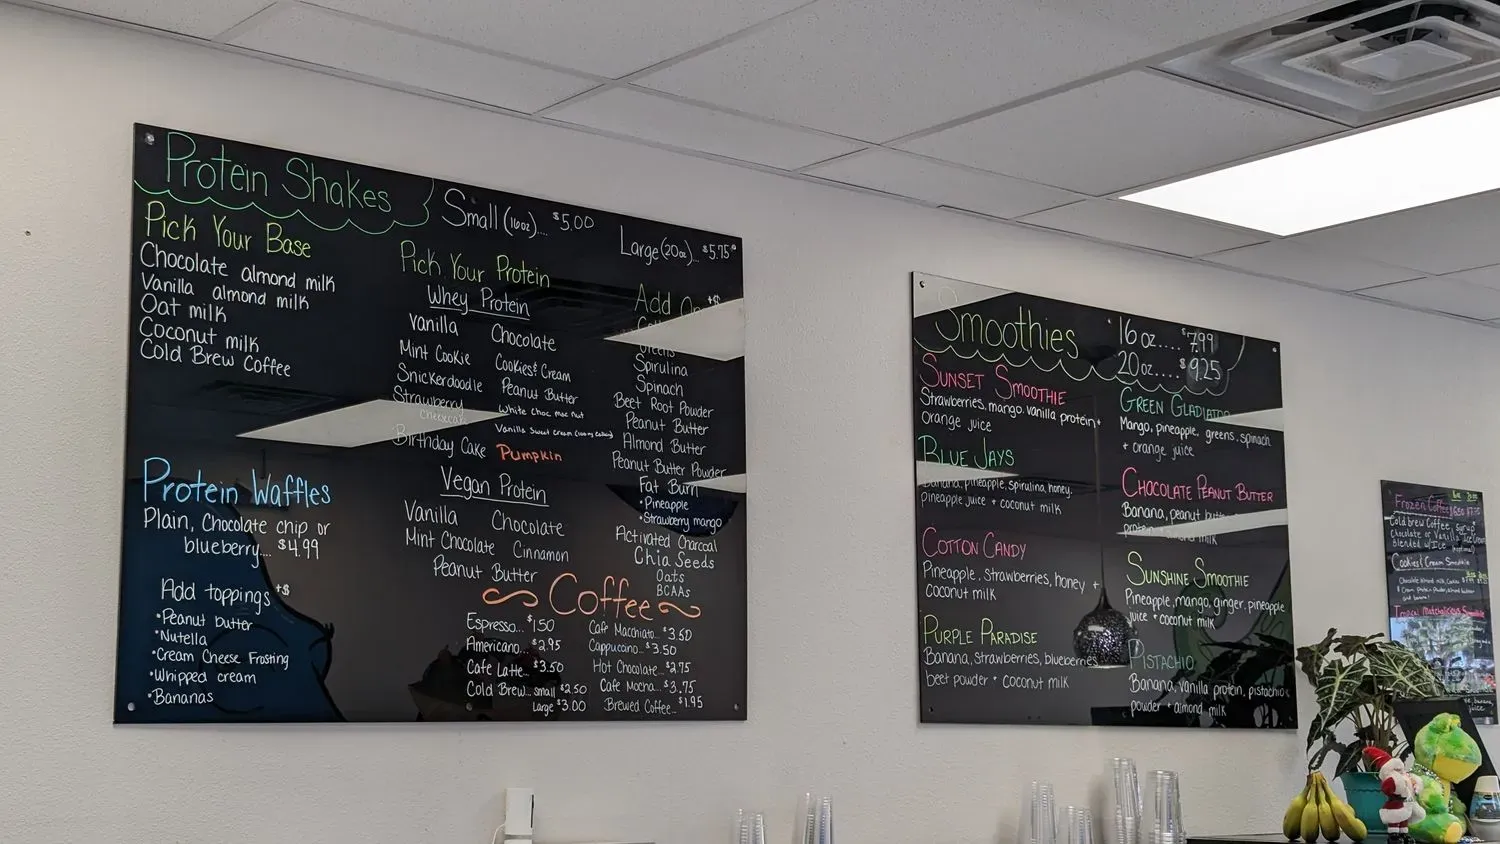 Protein Shakes
Small (16oz).... $5.00
Large (20oz)... $5.75
Pick Your Base
Chocolate almond milk
Vanilla almond milk
Oat milk
Coconut milk
Cold Brew Coffee
Pick Your Protein
Whey Protein
Vanilla
Chocolate
Mint Cookie
Cookies & Cream
Snickerdoodle
Peanut Butter
Strawberry
Cheesecake
White Choc mac nut
Birthday Cake
Pumpkin
Vegan Protein
Vanilla
Chocolate
Mint Chocolate
Cinnamon
Peanut Butter
Add On +$
Greens
Spirulina
Spinach
Beet Root Powder
Peanut Butter
Almond Butter
Peanut Butter Powder
Fat Burn
•Pineapple
•Strawberry mango
Activated Charcoal
Chia Seeds
Oats
BCAAs
Protein Waffles
Plain, Chocolate chip or
blueberry.... $4.99
Add toppings +$
•Peanut butter
•Nutella
•Cream Cheese Frosting
•Whipped cream
•Bananas
Coffee
Espresso... $1.50
Americano... $2.95
Cafe Latte... $3.50
Cold Brew... small $2.50
Large $3.00
Cafe Macchiato... $3.50
Cappuccino... $3.50
Hot Chocolate... $2.75
Cafe Mocha... $3.75
Brewed Coffee... $1.95
Smoothies
16 oz.... $7.99
20oz.... $9.25
Sunset Smoothie
Strawberries, mango, vanilla protein +
Orange juice
Blue Jays
Banana, pineapple, spirulina, honey,
pineapple juice + coconut milk
Cotton Candy
Pineapple, strawberries, honey +
coconut milk
Purple Paradise
Banana, strawberries, blueberries
beet powder + coconut milk
Green Gladiator
Mango, pineapple, greens, spinach
+ orange juice
Chocolate Peanut Butter
Banana, peanut butter
protein milk
Sunshine Smoothie
Pineapple, mango, ginger, pineapple
juice + coconut milk
Pistachio
Banana, vanilla protein, pistachio
powder + almond milk
Frozen Coffee
Cold brew Coffee, syrup
Chocolate or Vanilla
Blended w/ Ice
Cookies & Cream Smoothie